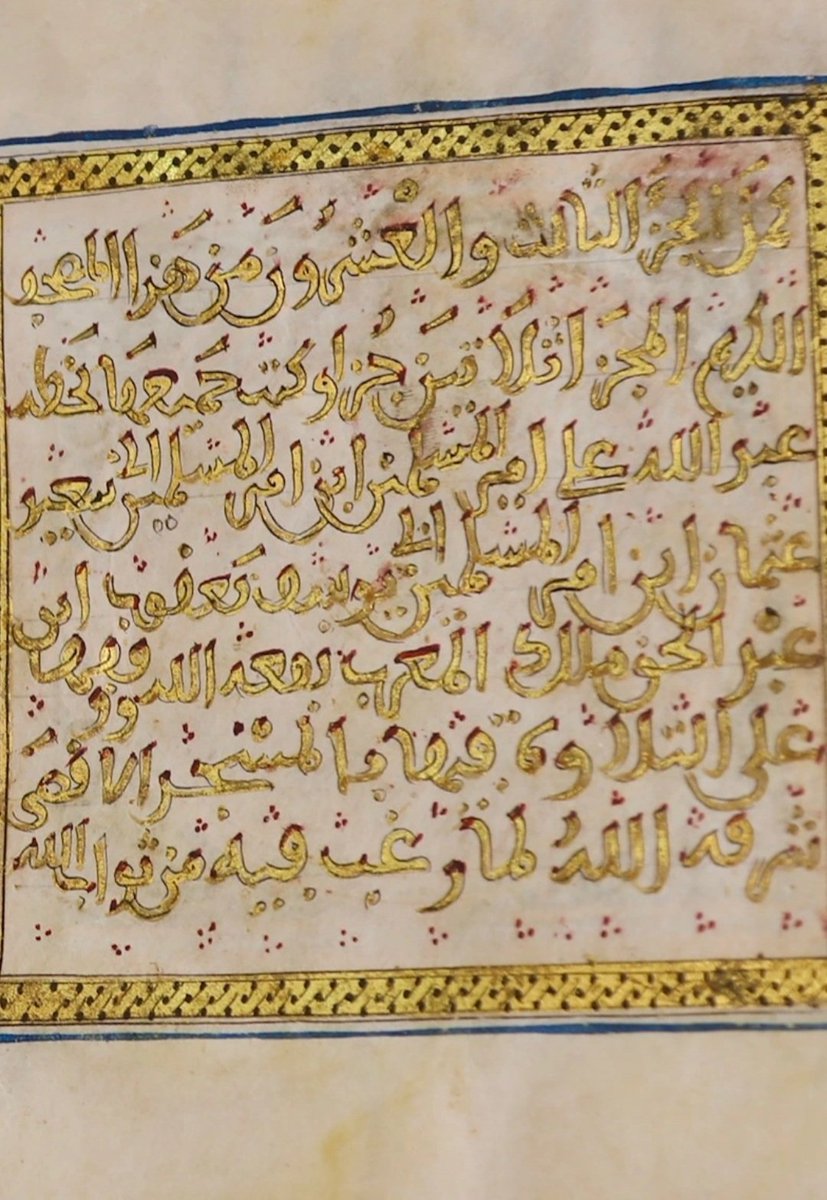 كمل الجزء الثالث والعشرون من هذا المصحف
الكريم المجزء اثلاثين جزءا وكتب جميعها بخطه
عبد الله علي امير المسلمين ابن امير المسلمين ابي سعيد
عثمان ابن امير المسلمين ابي يوسف يعقوب ابن
عبد الحق ملك المغرب نفعه الله ووقفها
على التلاوة فيها بالمسجد الاقصى
شرفه الله لما رغب فيه من ثواب الله